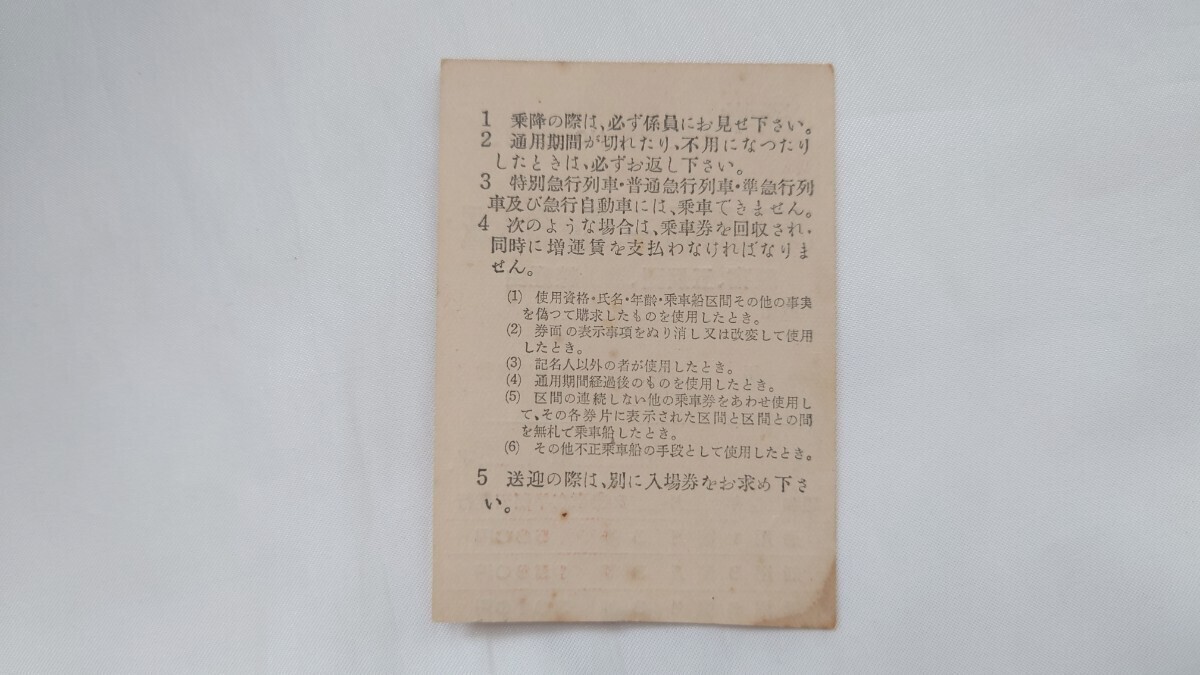 1 乗降の際は、必ず係員にお見せ下さい。
2 通用期間が切れたり、不用になつたり
したときは、必ずお返し下さい。
3 特別急行列車・普通急行列車・準急行列
車及び急行自動車には、乗車できません。
4 次のような場合は、乗車券を回収され・
同時に増運賃を支払わなければなりま
せん。
(1) 使用資格・氏名・年齢・乗車船区間その他の事実
を偽つて購求したものを使用したとき。
(2) 券面の表示事項をぬり消し又は改変して使用
したとき。
(3) 記名人以外の者が使用したとき。
(4) 通用期間経過後のものを使用したとき。
(5) 区間の連続しない他の乗車券をあわせ使用し
て、その各券片に表示された区間と区間との間
を無札で乗車船したとき。
(6) その他不正乗車船の手段として使用したとき。
5 送迎の際は、別に入場券をお求め下さ
い。